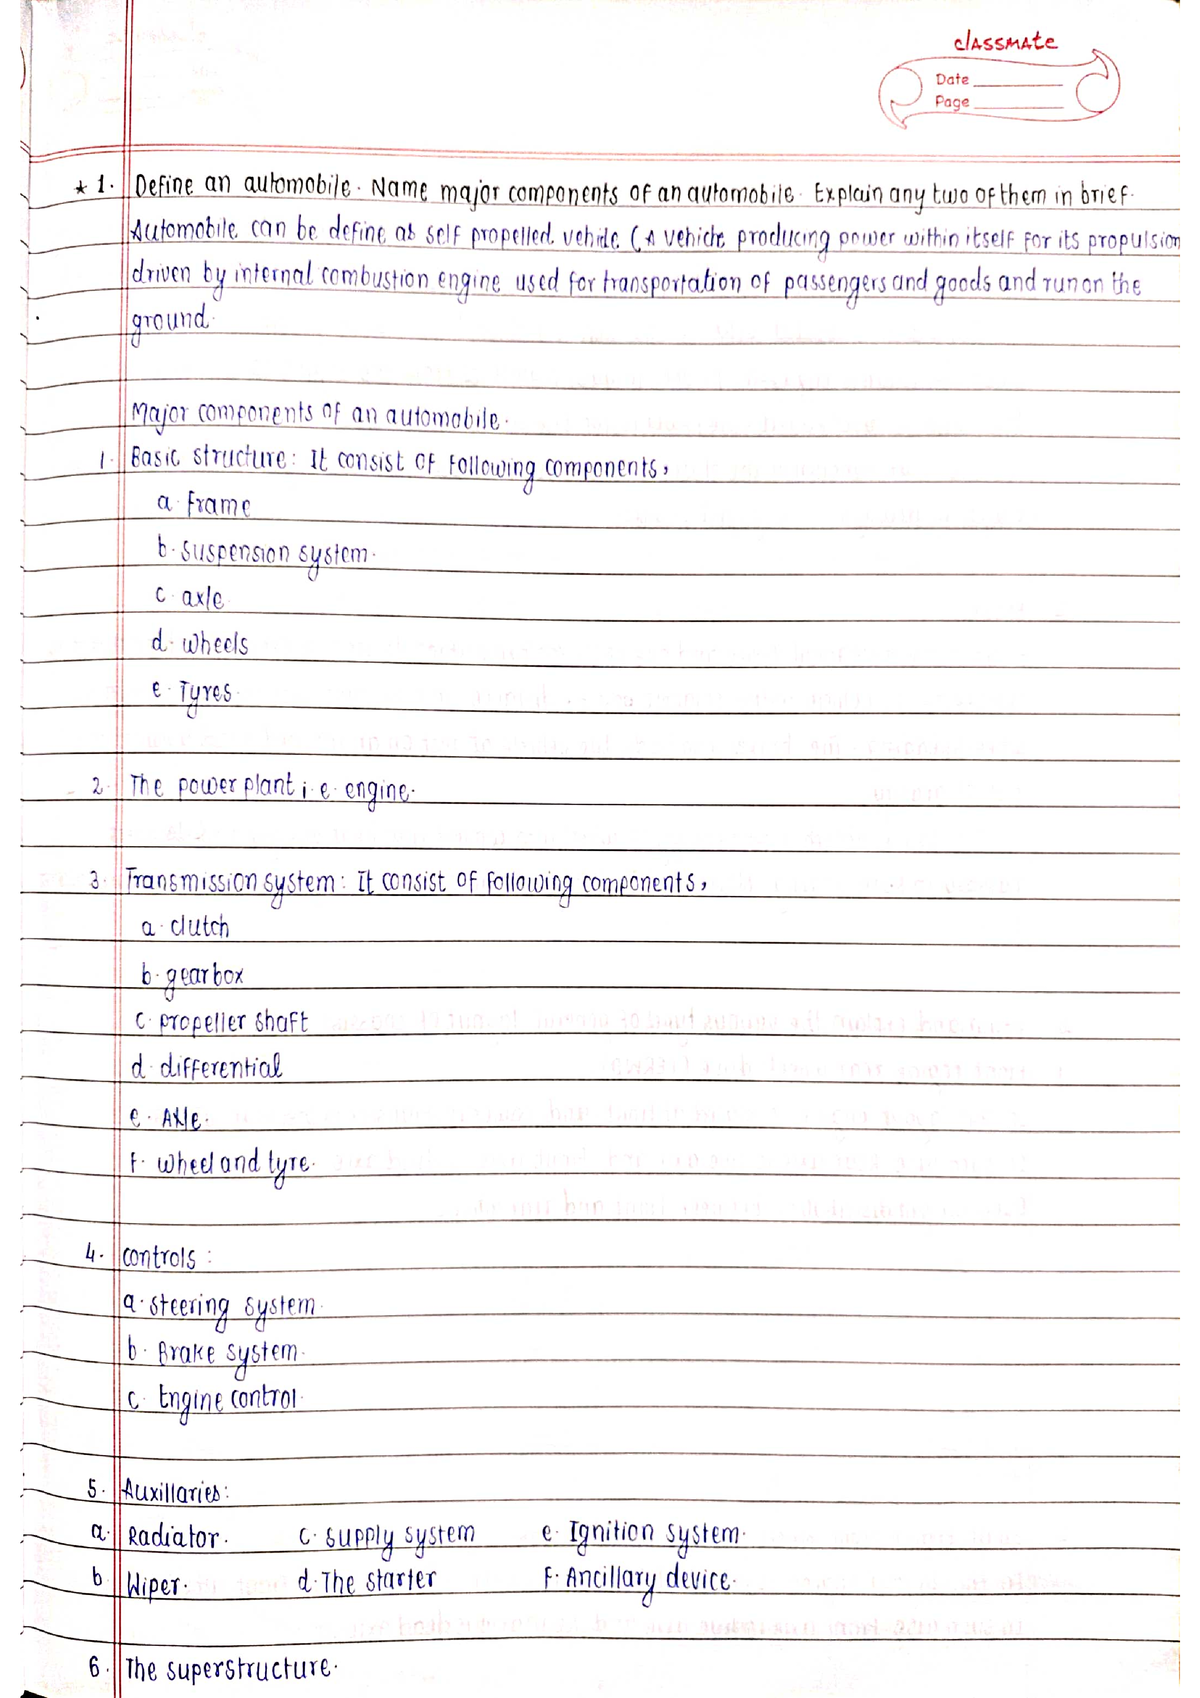 classmate
Date
Page
★ 1. Define an automobile. Name major components of an automobile. Explain any two of them in brief.
Automobile can be define as self propelled vehicle (A vehicle producing power within itself for its propulsion
driven by internal combustion engine used for transportation of passengers and goods and run on the
ground.
Major components of an automobile.
1. Basic structure: It consist of following components,
a. frame
b. suspension system.
c. axle
d. wheels
e. Tyres.
2. The power plant i.e. engine.
3. Transmission system: It consist of following components,
a. clutch
b. gearbox
c. propeller shaft
d. differential
e. Axle.
f. wheel and tyre.
4. controls :
a. steering system.
b. Brake system.
c. Engine control.
5. Auxillaries:
a. Radiator. c. supply system e. Ignition system.
b. Wiper. d. The starter f. Ancillary device.
6. The superstructure.